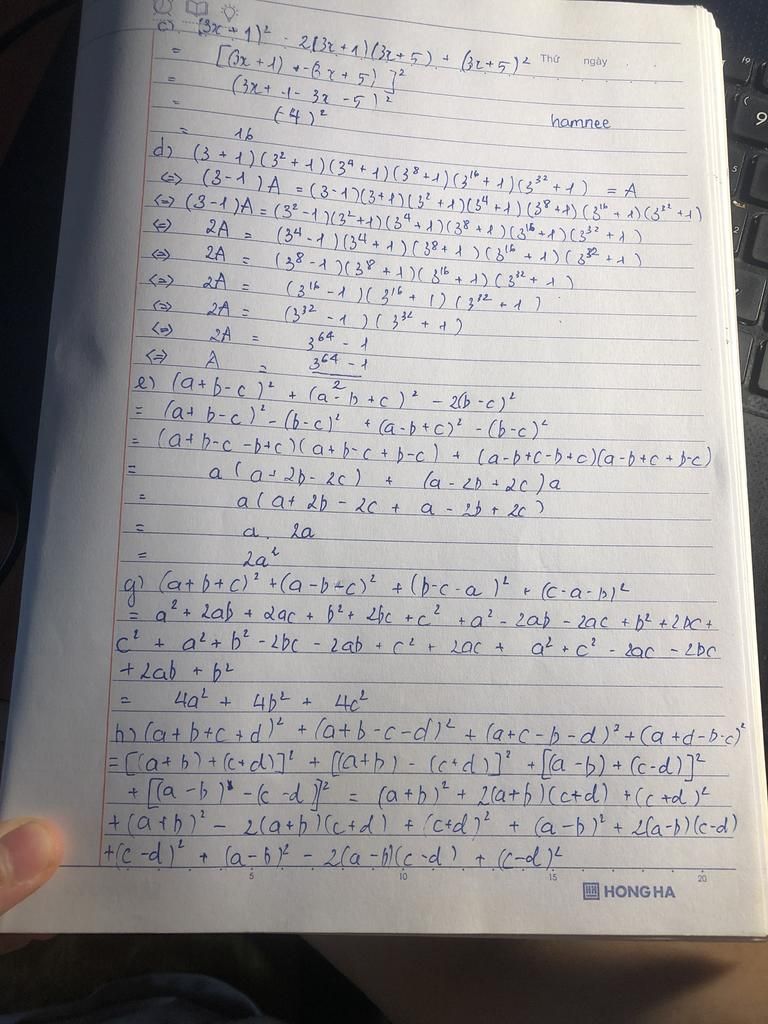 c) (3x+1)² - 2(3x+1)(3x+5) + (3x+5)²
Thứ ngày
= [(3x+1) + -(3x+5)]²
= (3x+1-3x-5)²
= (-4)²
hamnee
= 16
d) (3+1)(3²+1)(3⁴+1)(3⁸+1)(3¹⁶+1)(3³²+1) = A
<=> (3-1)A = (3-1)(3+1)(3²+1)(3⁴+1)(3⁸+1)(3¹⁶+1)(3³²+1)
<=> (3-1)A = (3²-1)(3²+1)(3⁴+1)(3⁸+1)(3¹⁶+1)(3³²+1)
<=> 2A = (3⁴-1)(3⁴+1)(3⁸+1)(3¹⁶+1)(3³²+1)
<=> 2A = (3⁸-1)(3⁸+1)(3¹⁶+1)(3³²+1)
<=> 2A = (3¹⁶-1)(3¹⁶+1)(3³²+1)
<=> 2A = (3³²-1)(3³²+1)
<=> 2A = 3⁶⁴-1
<=> A = (3⁶⁴-1)/2
e) (a+b-c)² + (a-b+c)² - 2(b-c)²
= (a+b-c)² - (b-c)² + (a-b+c)² - (b-c)²
= (a+b-c-b+c)(a+b-c+b-c) + (a-b+c-b+c)(a-b+c+b-c)
= a(a+2b-2c) + (a-2b+2c)a
= a(a+2b-2c+a-2b+2c)
= a. 2a
= 2a²
g) (a+b+c)² + (a-b-c)² + (b-c-a)² + (c-a-b)²
= a² + 2ab + 2ac + b² + 2bc + c² + a² - 2ab - 2ac + b² + 2bc +
c² + a² + b² - 2bc - 2ab + c² + 2ac + a² + c² - 2ac - 2bc
+ 2ab + b²
= 4a² + 4b² + 4c²
h) (a+b+c+d)² + (a+b-c-d)² + (a+c-b-d)² + (a+d-b-c)²
= [(a+b)+(c+d)]² + [(a+b)-(c+d)]² + [(a-b)+(c-d)]²
+ [(a-b)-(c-d)]² = (a+b)² + 2(a+b)(c+d) + (c+d)²
+ (a+b)² - 2(a+b)(c+d) + (c+d)² + (a-b)² + 2(a-b)(c-d)
+ (c-d)² + (a-b)² - 2(a-b)(c-d) + (c-d)²
5 10 15 20
HONG HA